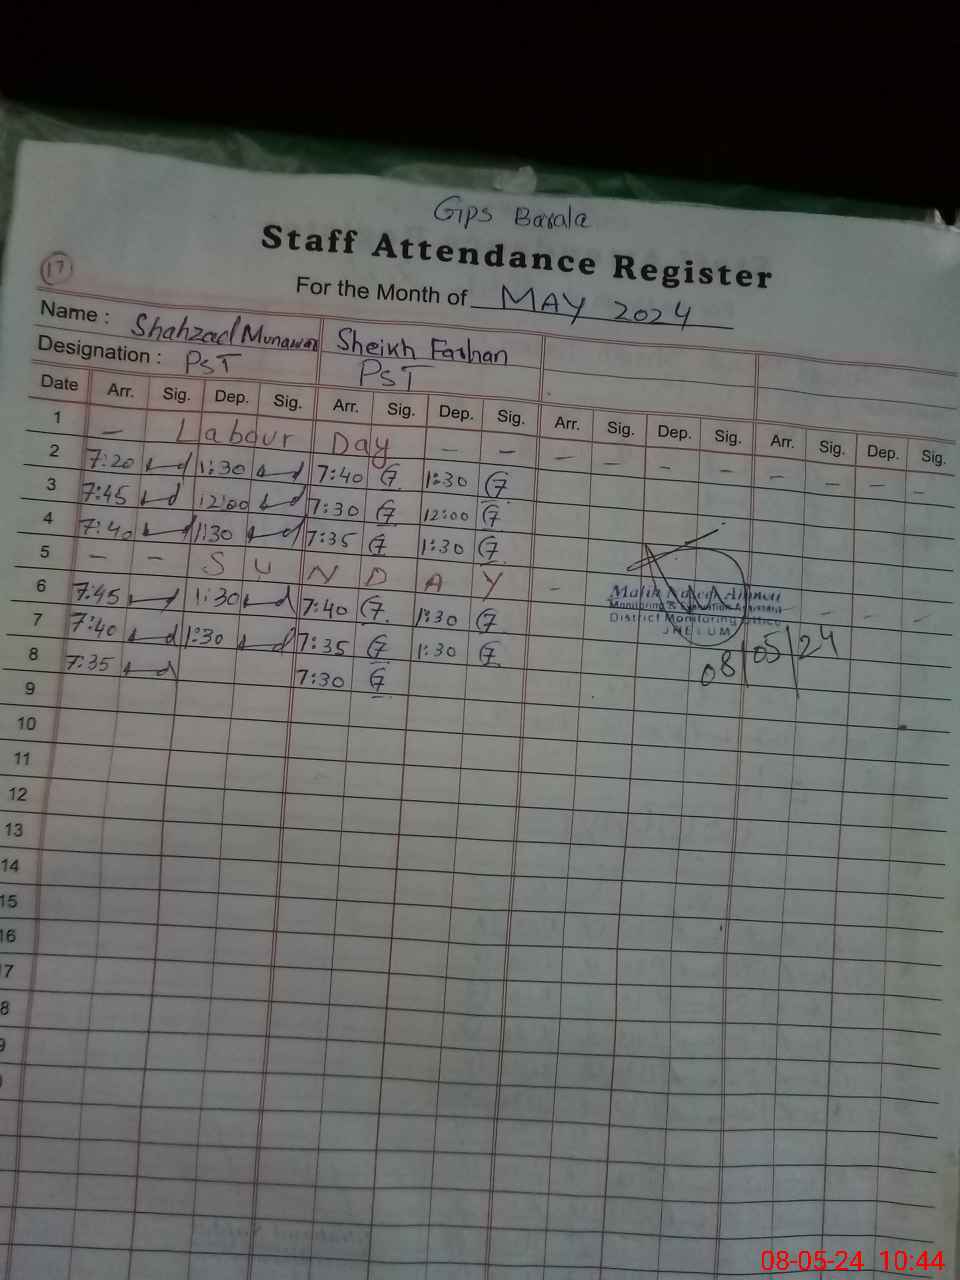 Gips Barala
Staff Attendance Register
17
For the Month of MAY 2024
Name : Shahzad Munawar Sheikh Farhan
Designation : PST PST
Date Arr. Sig. Dep. Sig. Arr. Sig. Dep. Sig. Arr. Sig. Dep. Sig. Arr. Sig. Dep. Sig.
1 — Labour Day — — — — — — — — — —
2 7:20 1:30 7:40 1:30
3 7:45 12:00 7:30 12:00
4 7:40 1:30 7:35 1:30
5 — — S U N D A Y — — — — —
6 7:45 1:30 7:40 1:30
7 7:40 1:30 7:35 1:30
8 7:35 7:30
Malik
Monitoring & Evaluation Assistant
District Monitoring Office
JHELUM
08/05/24
9
10
11
12
13
14
15
16
7
8
9
08-05-24 10:44